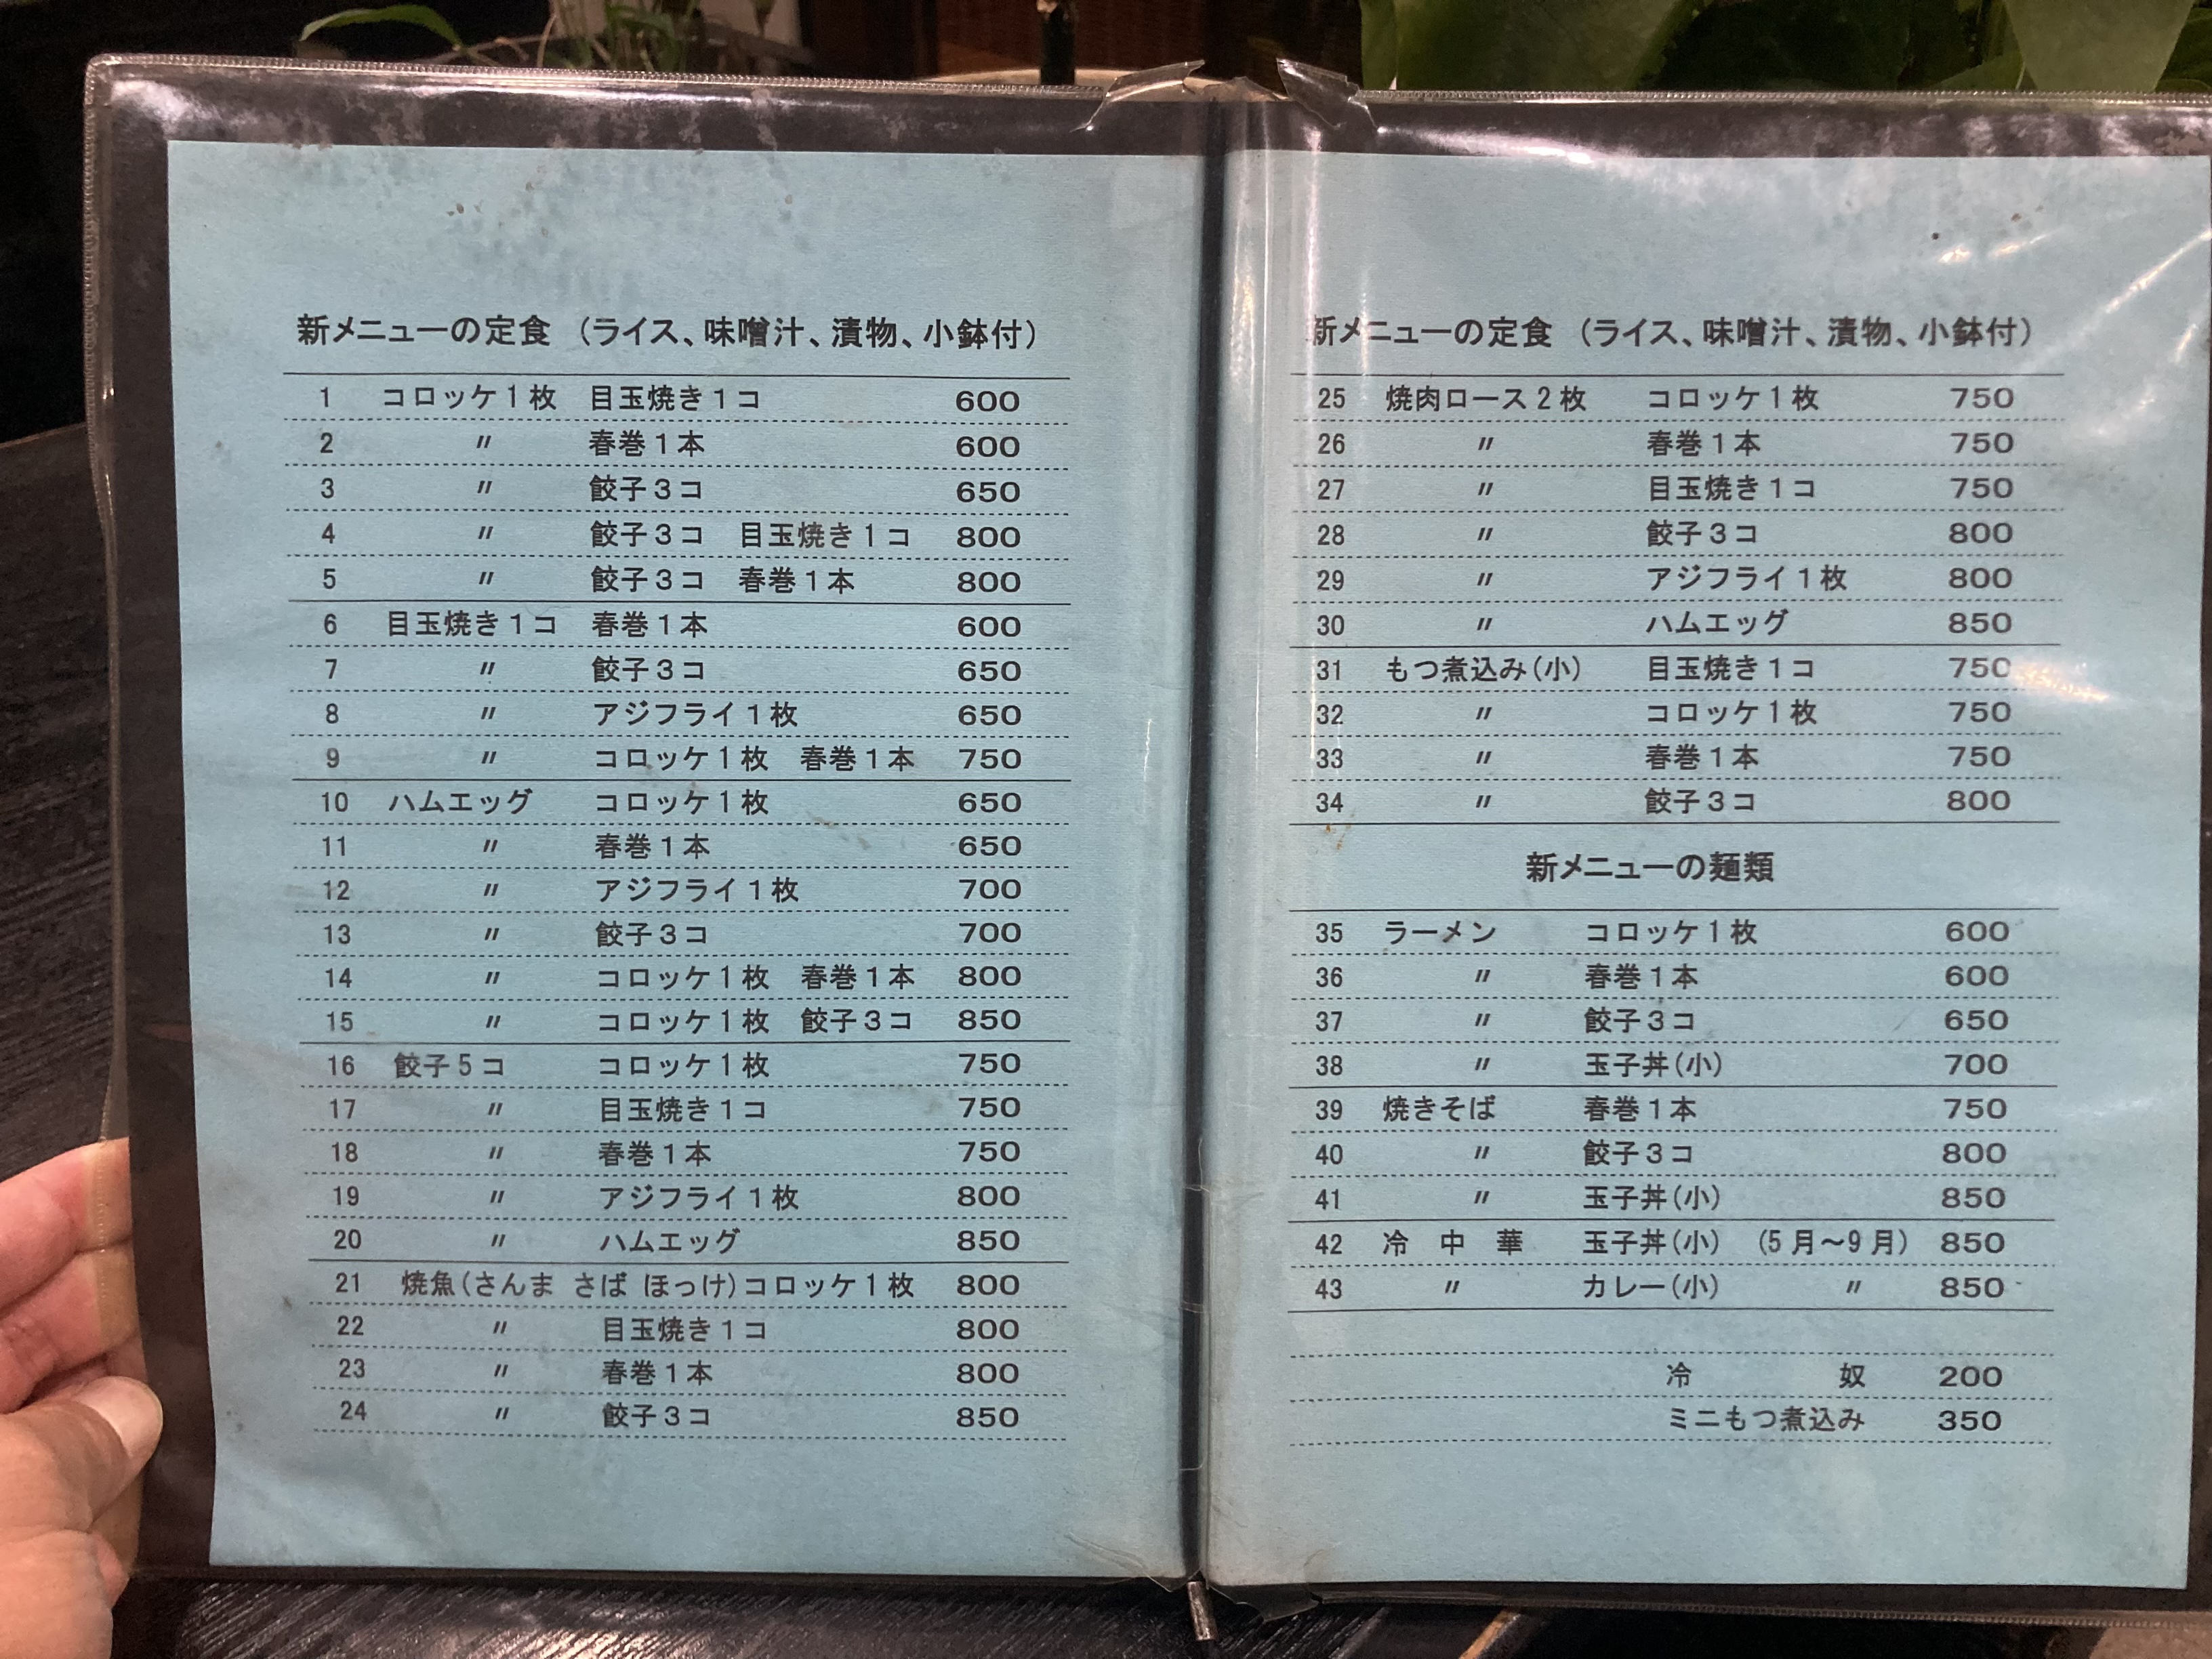 新メニューの定食 (ライス、味噌汁、漬物、小鉢付)
1 コロッケ1枚 目玉焼き1コ 600
2 〃 春巻1本 600
3 〃 餃子3コ 650
4 〃 餃子3コ 目玉焼き1コ 800
5 〃 餃子3コ 春巻1本 800
6 目玉焼き1コ 春巻1本 600
7 〃 餃子3コ 650
8 〃 アジフライ1枚 650
9 〃 コロッケ1枚 春巻1本 750
10 ハムエッグ コロッケ1枚 650
11 〃 春巻1本 650
12 〃 アジフライ1枚 700
13 〃 餃子3コ 700
14 〃 コロッケ1枚 春巻1本 800
15 〃 コロッケ1枚 餃子3コ 850
16 餃子5コ コロッケ1枚 750
17 〃 目玉焼き1コ 750
18 〃 春巻1本 750
19 〃 アジフライ1枚 800
20 〃 ハムエッグ 850
21 焼魚(さんま さば ほっけ)コロッケ1枚 800
22 〃 目玉焼き1コ 800
23 〃 春巻1本 800
24 〃 餃子3コ 850
新メニューの定食 (ライス、味噌汁、漬物、小鉢付)
25 焼肉ロース2枚 コロッケ1枚 750
26 〃 春巻1本 750
27 〃 目玉焼き1コ 750
28 〃 餃子3コ 800
29 〃 アジフライ1枚 800
30 〃 ハムエッグ 850
31 もつ煮込み(小) 目玉焼き1コ 750
32 〃 コロッケ1枚 750
33 〃 春巻1本 750
34 〃 餃子3コ 800
新メニューの麺類
35 ラーメン コロッケ1枚 600
36 〃 春巻1本 600
37 〃 餃子3コ 650
38 〃 玉子丼(小) 700
39 焼きそば 春巻1本 750
40 〃 餃子3コ 800
41 〃 玉子丼(小) 850
42 冷中華 玉子丼(小) (5月〜9月) 850
43 〃 カレー(小) 〃 850
冷奴 200
ミニもつ煮込み 350